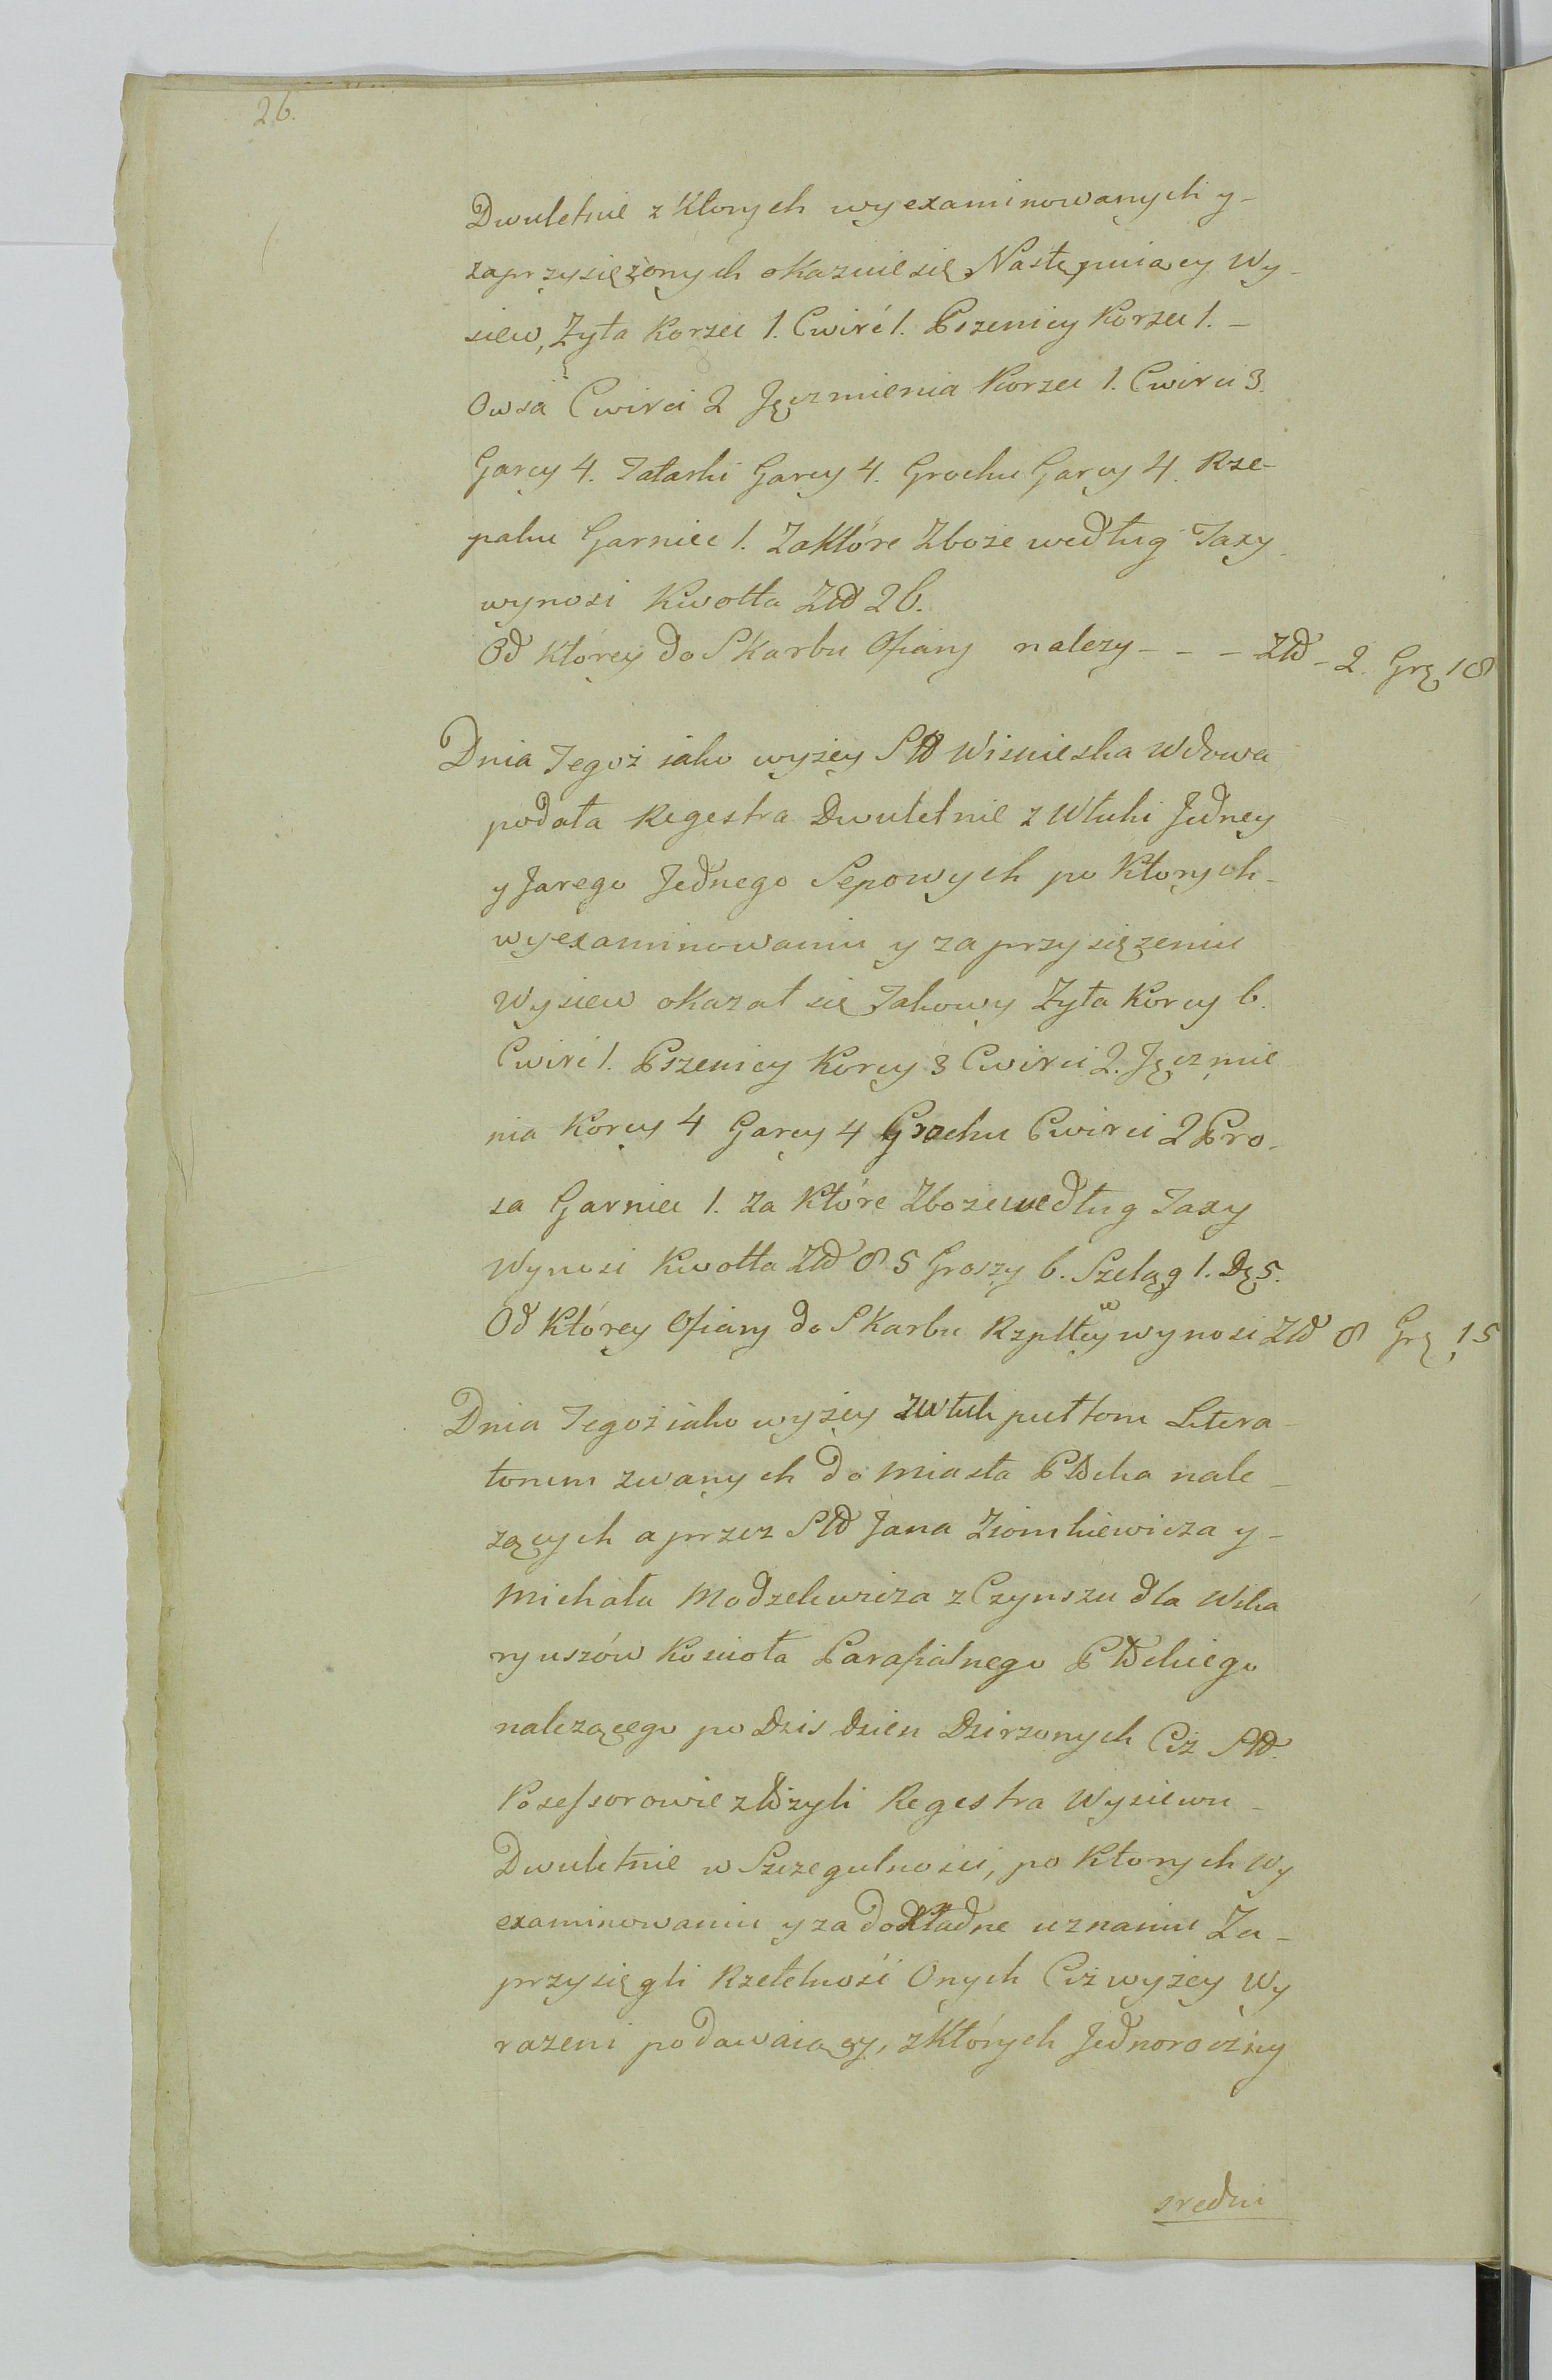 26.
Dwuletnie z Ktorych wyexaminowanych y-
zaprzysięzonych okazuie się Nastęuiący Wy-
siew, Zyta Korzec 1. Cwirć 1. Pszenicy Korzec 1. -
Owsa Cwirci 2 Jęczmienia Korzec 1. Cwirci 3.
Garcy 4. Tatarki Garcy 4. Grochu Garcy 4. Rze-
paku Garniec 1. Zaktóre Zboże według Taxy
wynosi Kwotta Złł 26.
Od Którey do Skarbu Ofiary nalezy - - - Złł - 2. Grę 18
Dnia Tegoż iako wyżey Słł Wisnieska Wdowa
podała Regestra Dwuletnie z Włuki Jedney
y Jarego Jednego Sepowych po Ktorych-
wyexaminowaniu y zaprzysięzeniu
Wysiew okazał się Takowy Zyta Korcy 6.
Cwirć 1. Pszenicy Korcy 3 Cwirci 2. Jęczmie
nia Korcy 4 Garcy 4 Grochu Cwirci 2 Pro-
sa Garniec 1. za Które Zboże według Taxy
Wynosi Kwotta Złł 85 Groszy 6. Szeląg 1. Dę 5.
Od Którey Ofiary do Skarbu Rzpltey wynosi Złł 8 Grę 15
Dnia Tegoż iako wyżey zwłuk pułtoru Litera-
torum zwanych do Miasta Płłcka nale-
zących a przez Słł Jana Ziomkiewicza y-
Michała Modzelewicza z Czynszu dla Wika
ryuszów Koscioła Parafialnego Płłckiego
nalezącego po Dzis dzien Dzirzonych Ciż Słł.
Possessorowie złłżyli Regestra Wysiewu-
Dwuletnie w Szczegulnosci, po Ktorych Wy
examinowaniu y za dokładne uznaniu Za-
przysięgli Rzetelność Onych Ciż wyżey Wy
razeni podawaiący, z Których Jednoroczny
sredni